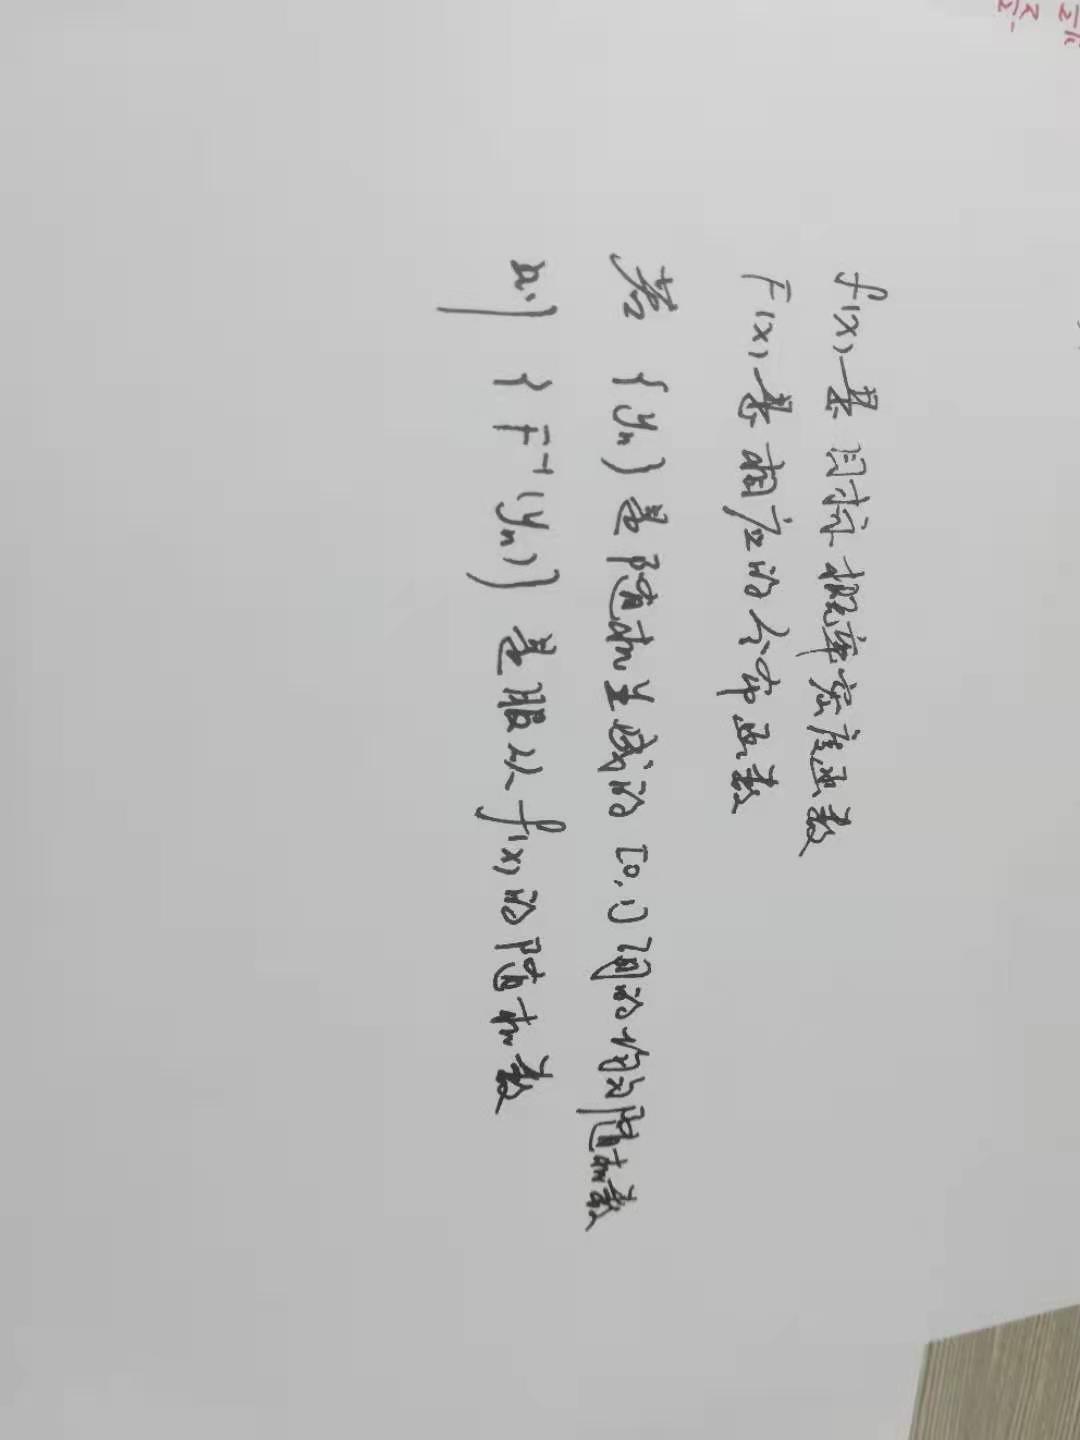 f(x)是目标概率密度函数
F(x)是相应的分布函数
若 {yn}是随机生成的[0,1)间的均匀随机数
则 {F⁻¹(yn)} 是服从f(x)的随机数